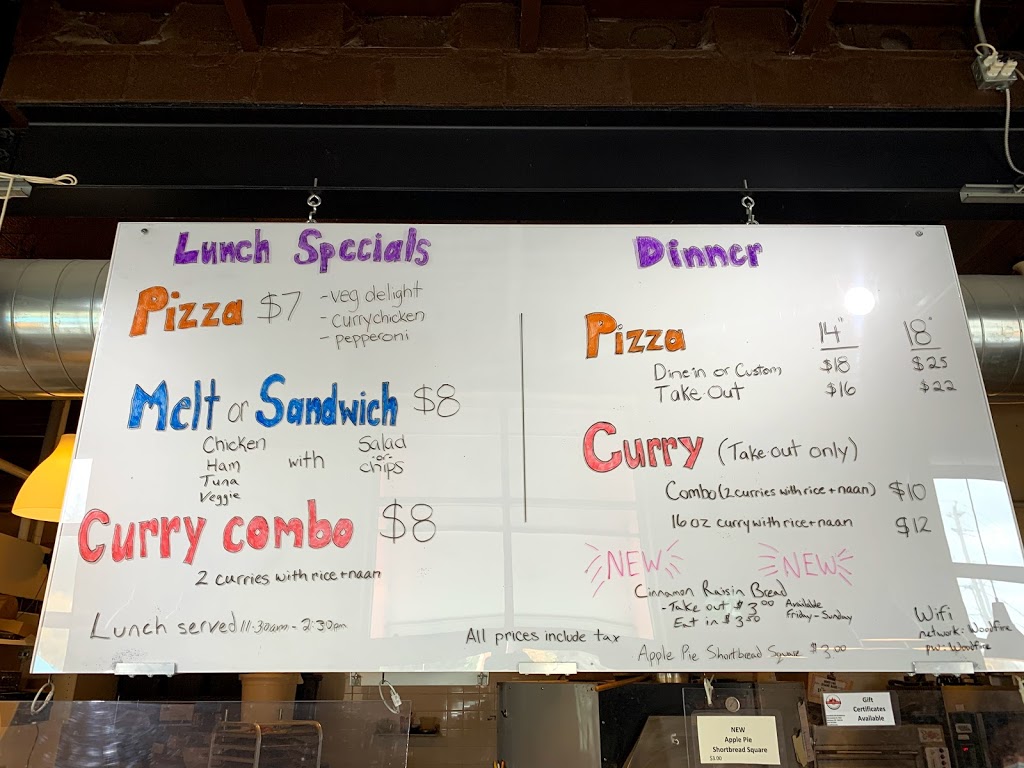 Lunch Specials
Pizza $7
- veg delight
- curry chicken
- pepperoni
Melt or Sandwich $8
Chicken
Ham
Tuna
Veggie
with
Salad
-or-
chips
Curry combo $8
2 curries with rice + naan
Lunch served 11:30am - 2:30pm
Dinner
Pizza 14" 18"
Dine in or Custom $18 $25
Take-Out $16 $22
Curry (Take-out only)
Combo (2 curries with rice + naan) $10
16 oz curry with rice + naan $12
NEW NEW
Cinnamon Raisin Bread
- Take out $3.00
Eat in $3.50
Available
Friday - Sunday
Apple Pie Shortbread Square $3.00
All prices include tax
Wifi
network: Woodfire
pw: Woodfire
NEW
Apple Pie
Shortbread Square
$3.00
Gift
Certificates
Available